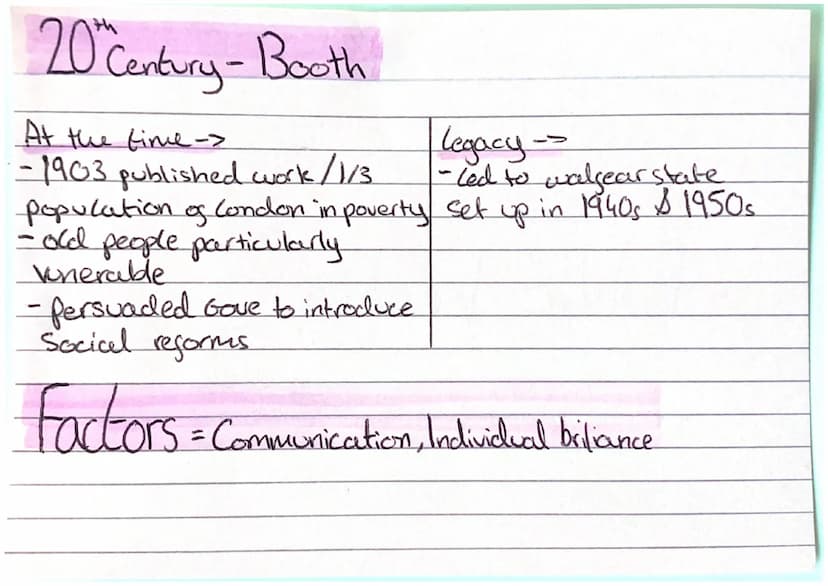 20th Century - Booth
At the time ->
- 1903 published work / 1/3
population of London in poverty
- old people particularly
vunerable
- persuaded Gove to introduce
Social reforms
Legacy ->
- Led to walfear state
set up in 1940s & 1950s
Factors = Communication, Individual briliance